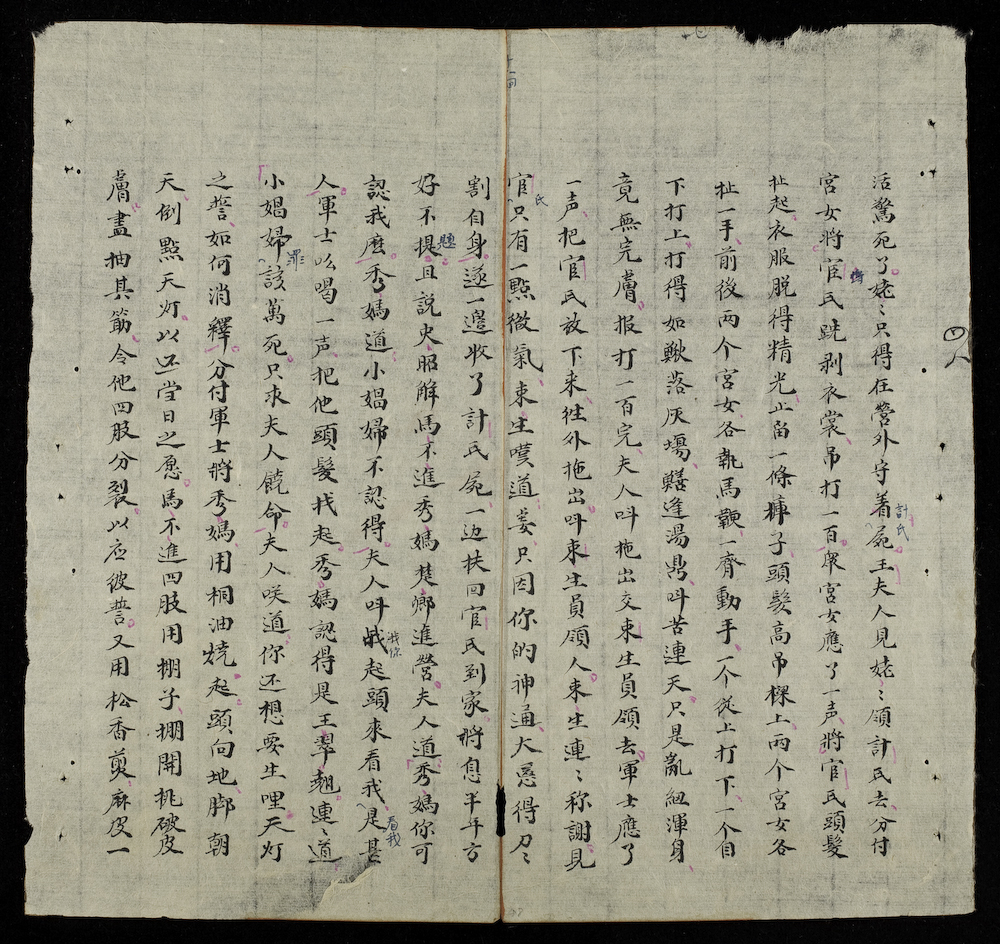 活驚死了姥〻只得在營外守着屍王夫人見姥〻領計氏去分付
計氏
宮女將宦氏跣剥衣裳吊打一百眾宮女應了一声將宦氏頭髮
扯起衣服脱得精光止留一條褲子頭髮高吊樑上兩个宮女各
扯一手前後兩个宮女各執馬鞭一齊動手一个從上打下一个自
下打上打得如鰍落灰塲鱔逢湯鼎呌苦連天只是亂紐渾身
竟無完膚报打一百完夫人呌拖出交束生員領去軍士應了
一声把宦氏放下来往外拖出呌束生員領人束生連〻称謝見
宦只有一點微氣束生嘆道妾只因你的神通大惹得刀〻
氏
割自身遂一邊收了計氏屍一边扶回宦氏到家將息半年方
好不提且説史昭解馬不進秀媽楚卿進營夫人道秀媽你可
題
認我麽秀媽道小娼婦不認得夫人呌起頭來看我是甚
我你
看我
人軍士吆喝一声把他頭髮找起秀媽認得是王翠翹連〻道
小娼婦該萬死只求夫人饒命夫人咲道你还想要生哩天灯
罪
之誓如何消釋分付軍士將秀媽用桐油烧起頭向地脚朝
天倒點天灯以还當日之愿馬不進四股用棚子掤開挑破皮
膚盡抽其筋令他四股分裂以应彼誓又用松香剪麻皮一